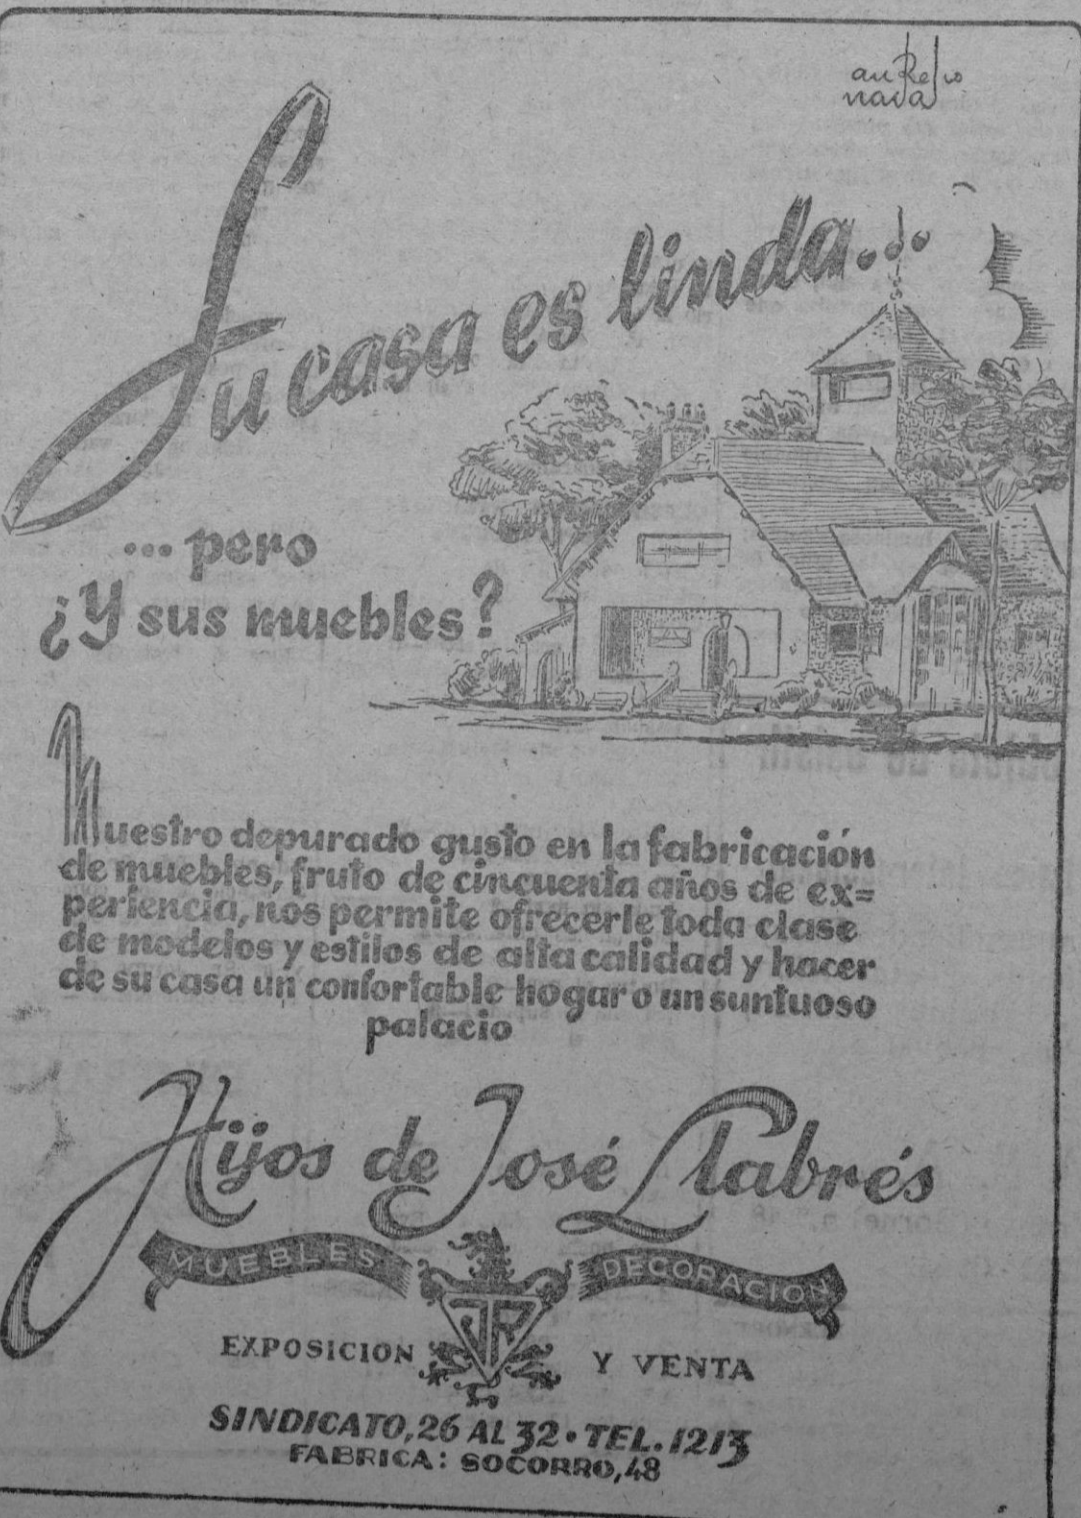 aurelio
nadal
Su casa es linda...
... pero
¿Y sus muebles?
Nuestro depurado gusto en la fabricación
de muebles, fruto de cincuenta años de ex=
periencia, nos permite ofrecerle toda clase
de modelos y estilos de alta calidad y hacer
de su casa un confortable hogar o un suntuoso
palacio
Hijos de José Llabrés
MUEBLES DECORACION
JR
EXPOSICION Y VENTA
SINDICATO, 26 AL 32 • TEL. 1213
FABRICA: SOCORRO, 48